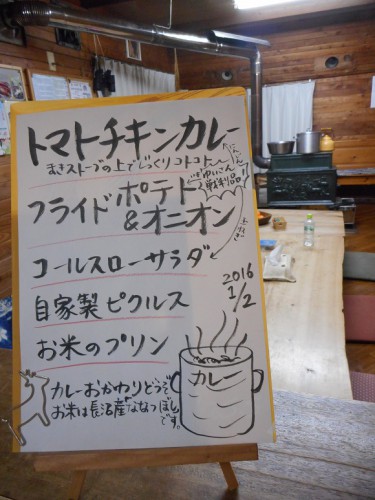 トマトチキンカレー
まきストーブの上でじっくりコトコトー
フライドポテト
&オニオン
コールスローサラダ
自家製ピクルス
お米のプリン
2016
1/2
カレー
カレーおかわりどうぞ
お米は長沼産「ななつぼし」
です。